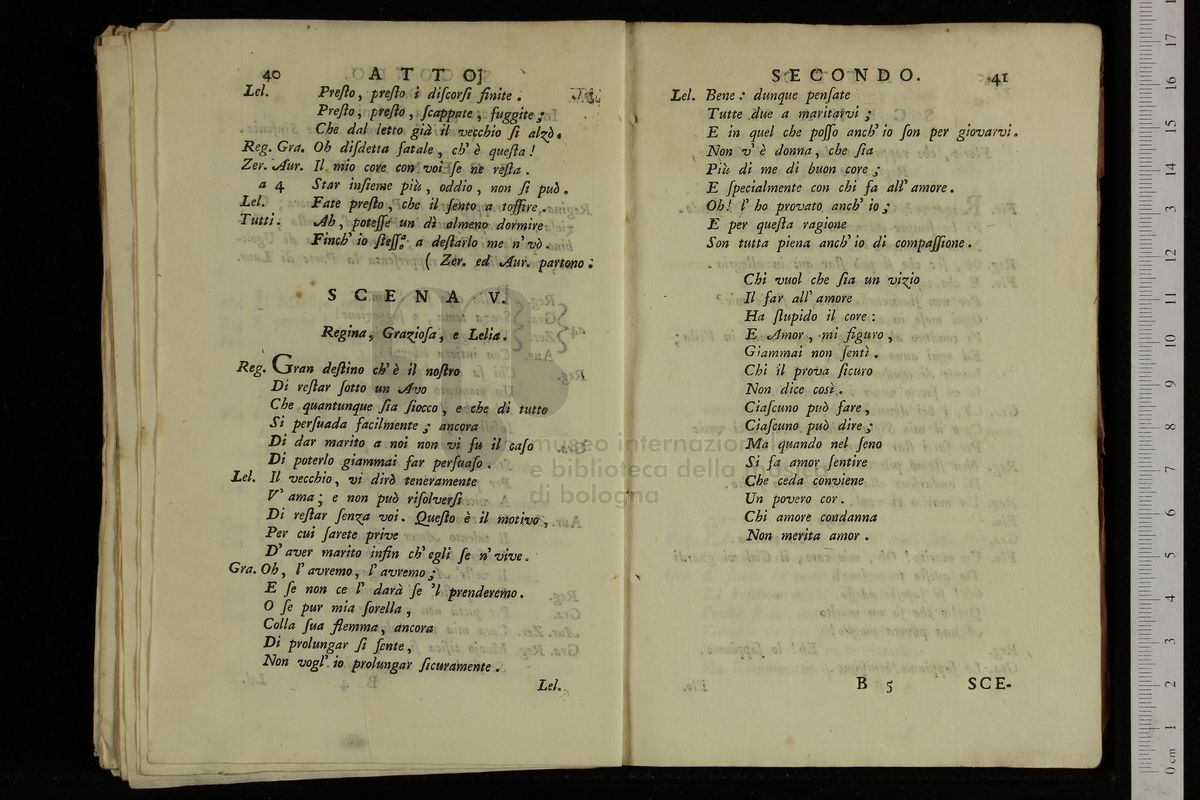 40 ATTO
Lel. Presto, presto i discorsi finite.
Presto, presto, scappate, fuggite;
Che dal letto già il vecchio si alzò.
Reg. Gra. Oh disdetta fatale, ch' è questa!
Zer. Aur. Il mio core con voi se ne resta.
a 4 Star insieme più, oddio, non si può.
Lel. Fate presto, che il sento a tossire.
Tutti. Ah, potesse un dì almeno dormire
Finch' io stesso a destarlo me n' vò.
( Zer. ed Aur. partono.
SCENA V.
Regina, Graziosa, e Lelia.
Reg. Gran destino ch' è il nostro
Di restar sotto un Avo
Che quantunque sia siocco, e che di tutto
Si persuada facilmente; ancora
Di dar marito a noi non vi fu il caso
Di poterlo giammai far persuaso.
Lel. Il vecchio, vi dirò teneramente
V' ama; e non può risolversi
Di restar senza voi. Questo è il motivo,
Per cui sarete prive
D' aver marito infin ch' egli se n' vive.
Gra. Oh, l' avremo, l' avremo;
E se non ce l' darà se 'l prenderemo.
O se pur mia sorella,
Colla sua flemma, ancora
Di prolungar si sente,
Non vogl' io prolungar sicuramente.
Lel.
SECONDO. 41
Lel. Bene: dunque pensate
Tutte due a maritarvi;
E in quel che posso anch' io son per giovarvi.
Non v' è donna, che sia
Più di me di buon core;
E specialmente con chi fa all' amore.
Oh! l' ho provato anch' io;
E per questa ragione
Son tutta piena anch' io di compassione.
Chi vuol che sia un vizio
Il far all' amore
Ha stupido il core:
E Amor, mi figuro,
Giammai non sentì.
Chi il prova sicuro
Non dice così.
Ciascuno può fare,
Ciascuno può dire;
Ma quando nel seno
Si fa amor sentire
Che ceda conviene
Un povero cor.
Chi amore condanna
Non merita amor.
B 5 SCE-
museo internazionale
e biblioteca della musica
di bologna